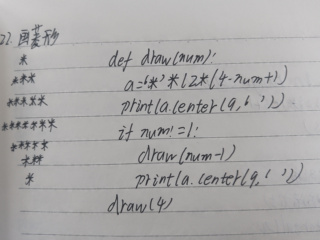 22. 画菱形
*
***
*****
*******
*****
***
*
def draw(num):
a='*'*(2*(4-num+1)
print(a.center(9,' '))
if num!=1:
draw(num-1)
print(a.center(9,' '))
draw(4)